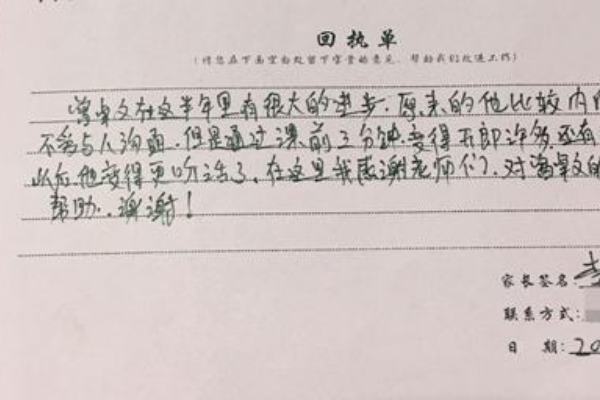 回执单
(请您在下面空白处留下宝贵的意见,帮助我们改进工作)
卓文在这半年里有很大的进步.原来的他比较内
不能与人沟通.但是通过课前3分钟.变得开朗许多.还有
以后他变得更加活了.在这里我感谢老师们.对卓文的
帮助.谢谢!
家长签名:
联系方式:
日 期:20